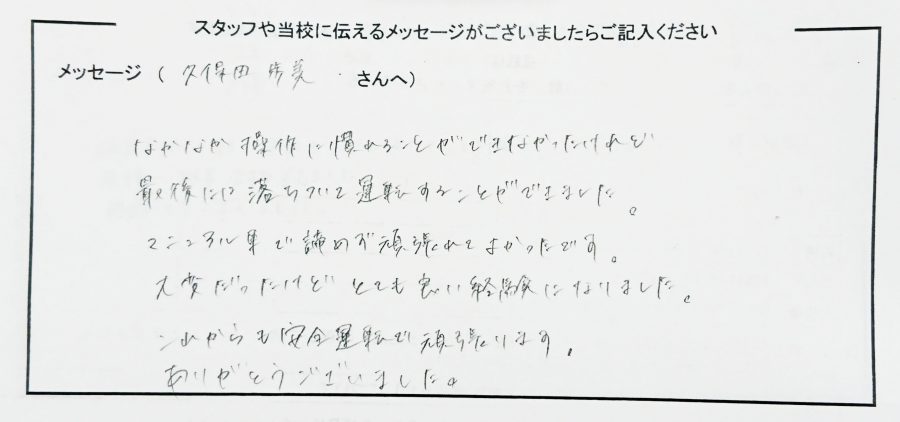 スタッフや当校に伝えるメッセージがございましたらご記入ください
メッセージ ( 久保田 美 さんへ)
なかなか操作に慣れることができなかったけれど
最後には落ちついて運転することができました。
マニュアル車で諦めず頑張れてよかったです。
大変だったけど とても良い経験になりました。
これからも安全運転で頑張ります。
ありがとうございました。